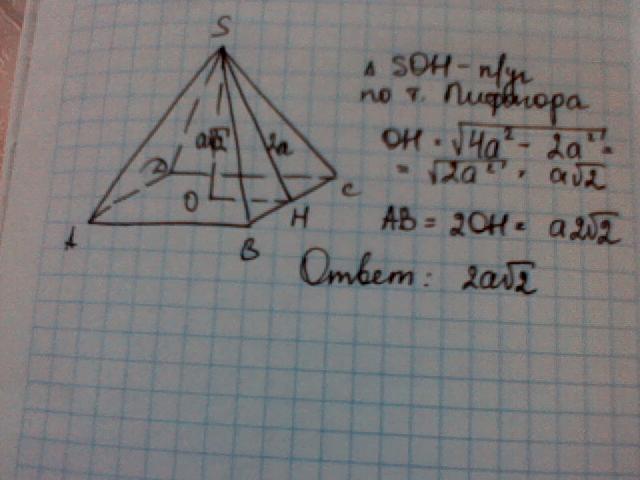 S
a√2
2a
D
O
C
H
A
B
△ SOH - п/уг
по т. Пифагора
OH = √4a² - 2a² =
= √2a² = a√2
AB = 2OH = a2√2
Ответ: 2a√2